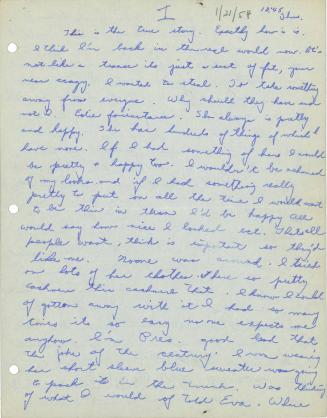 I
1/21/54 12:45
Thurs.
This is the true story. Exactly how it is.
I think I'm back in the real world now. It's
not like a trance its just a sort of fit, your
near crazy. I wanted to steal. To take something
away from everyone. Why should they have and
not I. Edie for instance. I'm always pretty
and happy. She has hundreds of things of which I
have none. If I had something of hers I could
be pretty & happy too. I wouldn't be ashamed
of my looks and if I had something really
pretty to put on all the time I would want
to be thin in them I'd be happy all
would say how nice I looked ect. That's all
people want, think is important so they'd
like me. Noone was around. I tried
on lots of her clothes. She has so pretty
cashmere this cashmere that. I know I could
of gotten away with it I had so many
times its so easy no one expects me
anyhow. I'm Pres. good God that
the joke of the century. I was wearing
her short sleeve blue sweater was going
to put it in the trunk. Was thinking
of what I would of told Eva. Where